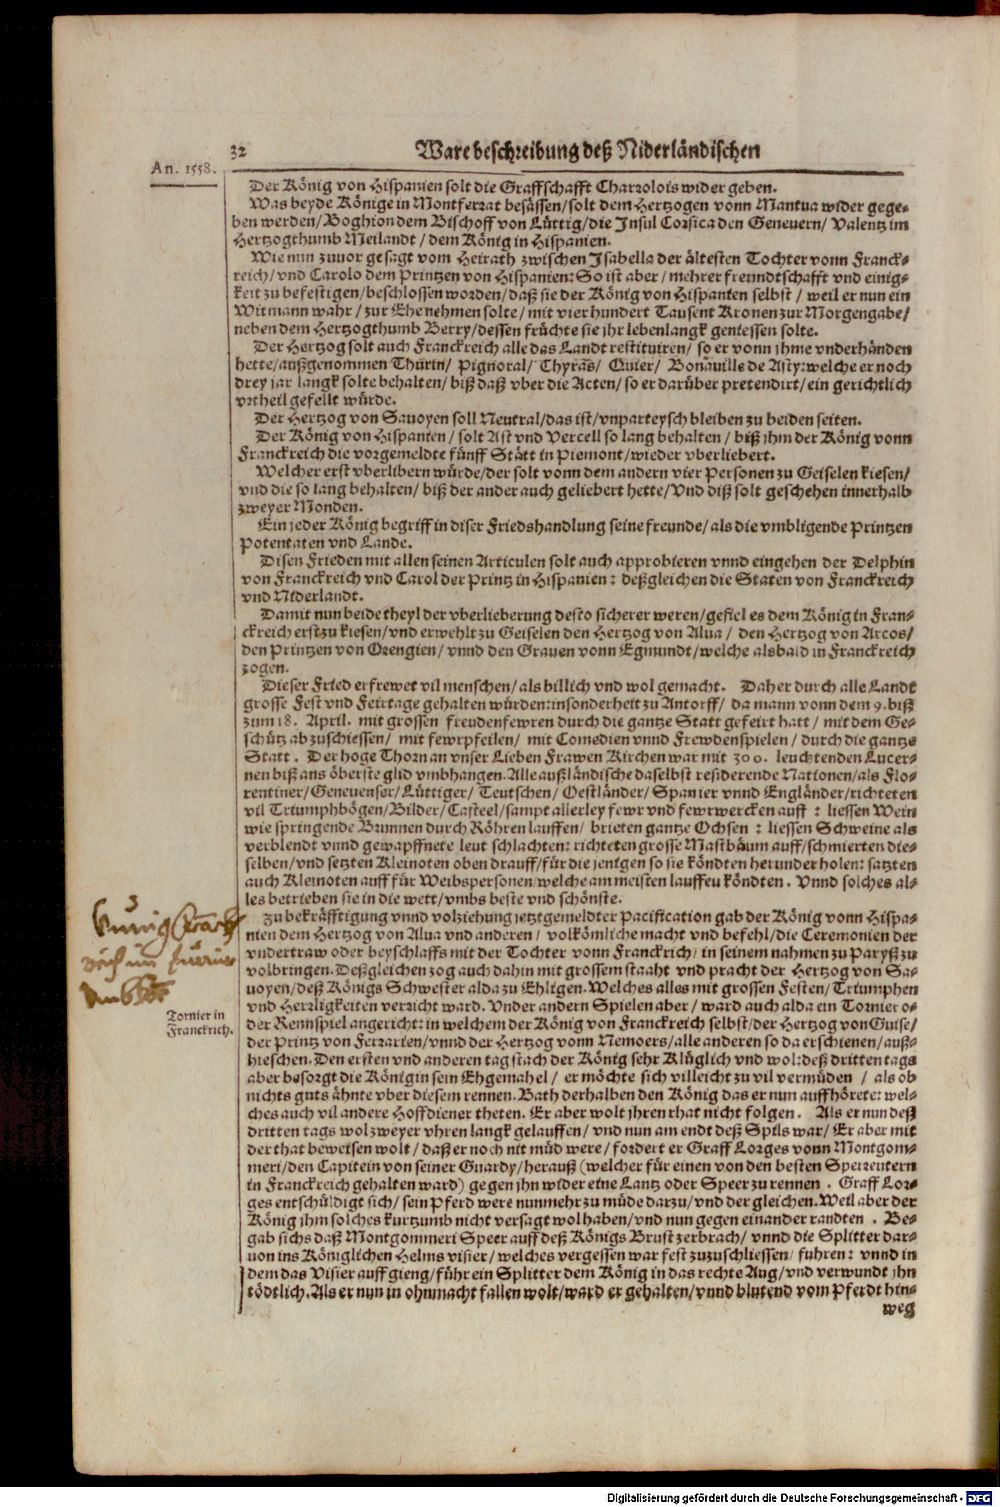 32
Ware beschreibung deß Niderländischen
An. 1558.
Der König von Hispanien solt die Graffschafft Charrolois wider geben.
Was beyde Könige in Montferrat besässen/solt dem Hertzogen vonn Mantua wider gege-
ben werden/Boghion dem Bischoff von Lüttig/die Insul Corsica den Genevern/ Valentz im
Hertzogthumb Meilandt/dem König in Hispanien.
Wie nun zuuor gesagt vom Heirath zwischen Isabella der ältesten Tochter vonn Franck-
reich/vnd Carolo dem Printzen von Hispanien: So ist aber/mehrer freundtschafft vnd einig-
keit zu befestigen/beschlossen worden/daß sie der König von Hispanien selbst/ weil er nun ein
Witmann wahr/zur Ehe nehmen solte/mit vier hundert Tausent Kronen zur Morgengabe/
neben dem Hertzogthumb Berry/dessen früchte sie jhr lebenlangk geniessen solte.
Der Hertzog solt auch Franckreich alle das Landt restituiren/ so er vonn jhme vnderhänden
hette/außgenommen Thurin/ Pignoral/ Thyras/ Quier/ Bonauille de Asty: welche er noch
drey jar langk solte behalten/ biß daß vber die Acten/ so er darüber pretendirt/ein gerichtlich
vrtheil gefellt würde.
Der Hertzog von Sauoyen soll Neutral/das ist/vnparteysch bleiben zu beiden seiten.
Der König von Hispanien/ solt Ast vnd Vercell so lang behalten/ biß jhm der König vonn
Franckreich die vorgemeldte fünff Stätt in Piemont/wieder vberliebert.
Welcher erst vberlibern würde/der solt vonn dem andern vier Personen zu Geiselen kiesen/
vnd die so lang behalten/ biß der ander auch geliebert hette/Vnd diß solt geschehen innerhalb
zweyer Monden.
Ein jeder König begriff in diser Friedshandlung seine freunde/als die vmbligende Printzen
Potentaten vnd Lande.
Disen Frieden mit allen seinen Articulen solt auch approbieren vnnd eingehen der Delphin
von Franckreich vnd Carol der Printz in Hispanien: deßgleichen die Staten von Franckreich
vnd Niderlandt.
Damit nun beide theyl der vberlieberung desto sicherer weren/gefiel es dem König in Fran-
ckreich erst zu kiesen/vnd erwehlt zu Geiselen den Hertzog von Alua/ den Hertzog von Arcos/
den Printzen von Orengien/ vnnd den Grauen vonn Egmundt/welche alsbald in Franckreich
zogen.
Dieser Fried erfrewet vil menschen/als billich vnd wol gemacht. Daher durch alle Landt
grosse Fest vnd Feirtage gehalten würden: insonderheit zu Antorff/ da mann vonn dem 9. biß
zum 18. April. mit grossen freudenfewren durch die gantze Statt gefeirt hatt/ mit dem Ge-
schütz abzuschiessen/ mit fewrpfeilen/ mit Comedien vnnd Frewdenspielen/ durch die gantze
Statt. Der hoge Thorn an vnser Lieben Frawen Kirchen war mit 300. leuchtenden Lucer-
nen biß ans öberste glid vmbhangen. Alle außländische daselbst residerende Nationen/als Flo-
rentiner/Geneuensor/Lüttiger/ Teutschen/ Oestländer/Spanier vnnd Engländer/richteten
vil Triumphbögen/Bilder/Casteel/sampt allerley fewr vnd fewrwercken auff: liessen Wein
wie springende Brunnen durch Röhren lauffen/ brieten gantze Ochsen: liessen Schweine als
verblendt vnnd gewapffnete leut schlachten: richteten grosse Mastbäum auff/schmierten die-
selben/vnd setzten Kleinoten oben drauff/für die jenigen so sie köndten herunder holen: satzten
auch Kleinoten auff für Weibspersonen/welche am meisten lauffen köndten. Vnnd solches al-
les betrieben sie in die wett/vmbs beste vnd schönste.
Zu bekräfftigung vnnd volziehung jetztgemeldter Pacification gab der König vonn Hispa-
nien dem Hertzog von Alua vnd anderen/ volkömliche macht vnd befehl/die Ceremonien der
vndertraw oder beyschlaffs mit der Tochter vonn Franckrich/ in seinem nahmen zu Paryß zu
volbringen. Deßgleichen zog auch dahin mit grossem staaht vnd pracht der Hertzog von Sa-
uoyen/deß Königs Schwester alda zu Ehligen. Welches alles mit grossen Festen/Triumphen
vnd Herrligkeiten verricht ward. Vnder andern Spielen aber/ ward auch alda ein Tornier o-
der Rennspiel angericht: in welchem der König von Franckreich selbst/der Hertzog von Guise/
der Printz von Ferrarien/vnnd der Hertzog vonn Nemoers/alle anderen so da erschienen/auß-
hieschen. Den ersten vnd anderen tag stach der König sehr Klüglich vnd wol: deß dritten tags
aber besorgt die Königin sein Ehgemahel/ er möchte sich villeicht zu vil vermüden/ als ob
nichts guts ähnte vber diesem rennen. Bath derhalben den König das er nun auffhörete: wel-
ches auch vil andere Hoffdiener theten. Er aber wolt jhren rhat nicht folgen. Als er nun deß
dritten tags wol zweyer vhren langk gelauffen/ vnd nun am endt deß Spils war/ Er aber mit
der that beweisen wolt/ daß er noch nit müd were/ fordert er Graff Lorges vonn Montgom-
meri/den Capitein von seiner Guardy/herauß (welcher für einen von den besten Speerreutern
in Franckreich gehalten ward) gegen jhn wider eine Lantz oder Speer zu rennen. Graff Lor-
ges entschüldigt sich/ sein Pferd were nunmehr zu müde darzu/vnd der gleichen. Weil aber der
König jhm solches kurtzumb nicht versagt wol haben/vnd nun gegen einander randten. Be-
gab sichs daß Montgommeri Speer auff deß Königs Brust zerbrach/ vnnd die Splitter dar-
uon ins Königlichen Helms visier/welches vergessen war fest zuzuschliessen/ fuhren: vnnd in
dem das Visier auff gieng/führ ein Splitter dem König in das rechte Aug/vnd verwundt jhn
tödtlich. Als er nun in ohnmacht fallen wolt/ward er gehalten/vnnd blutend vom Pferdt hin-
weg
Tornier in
Franckrich.
Digitalisierung gefördert durch die Deutsche Forschungsgemeinschaft - DFG